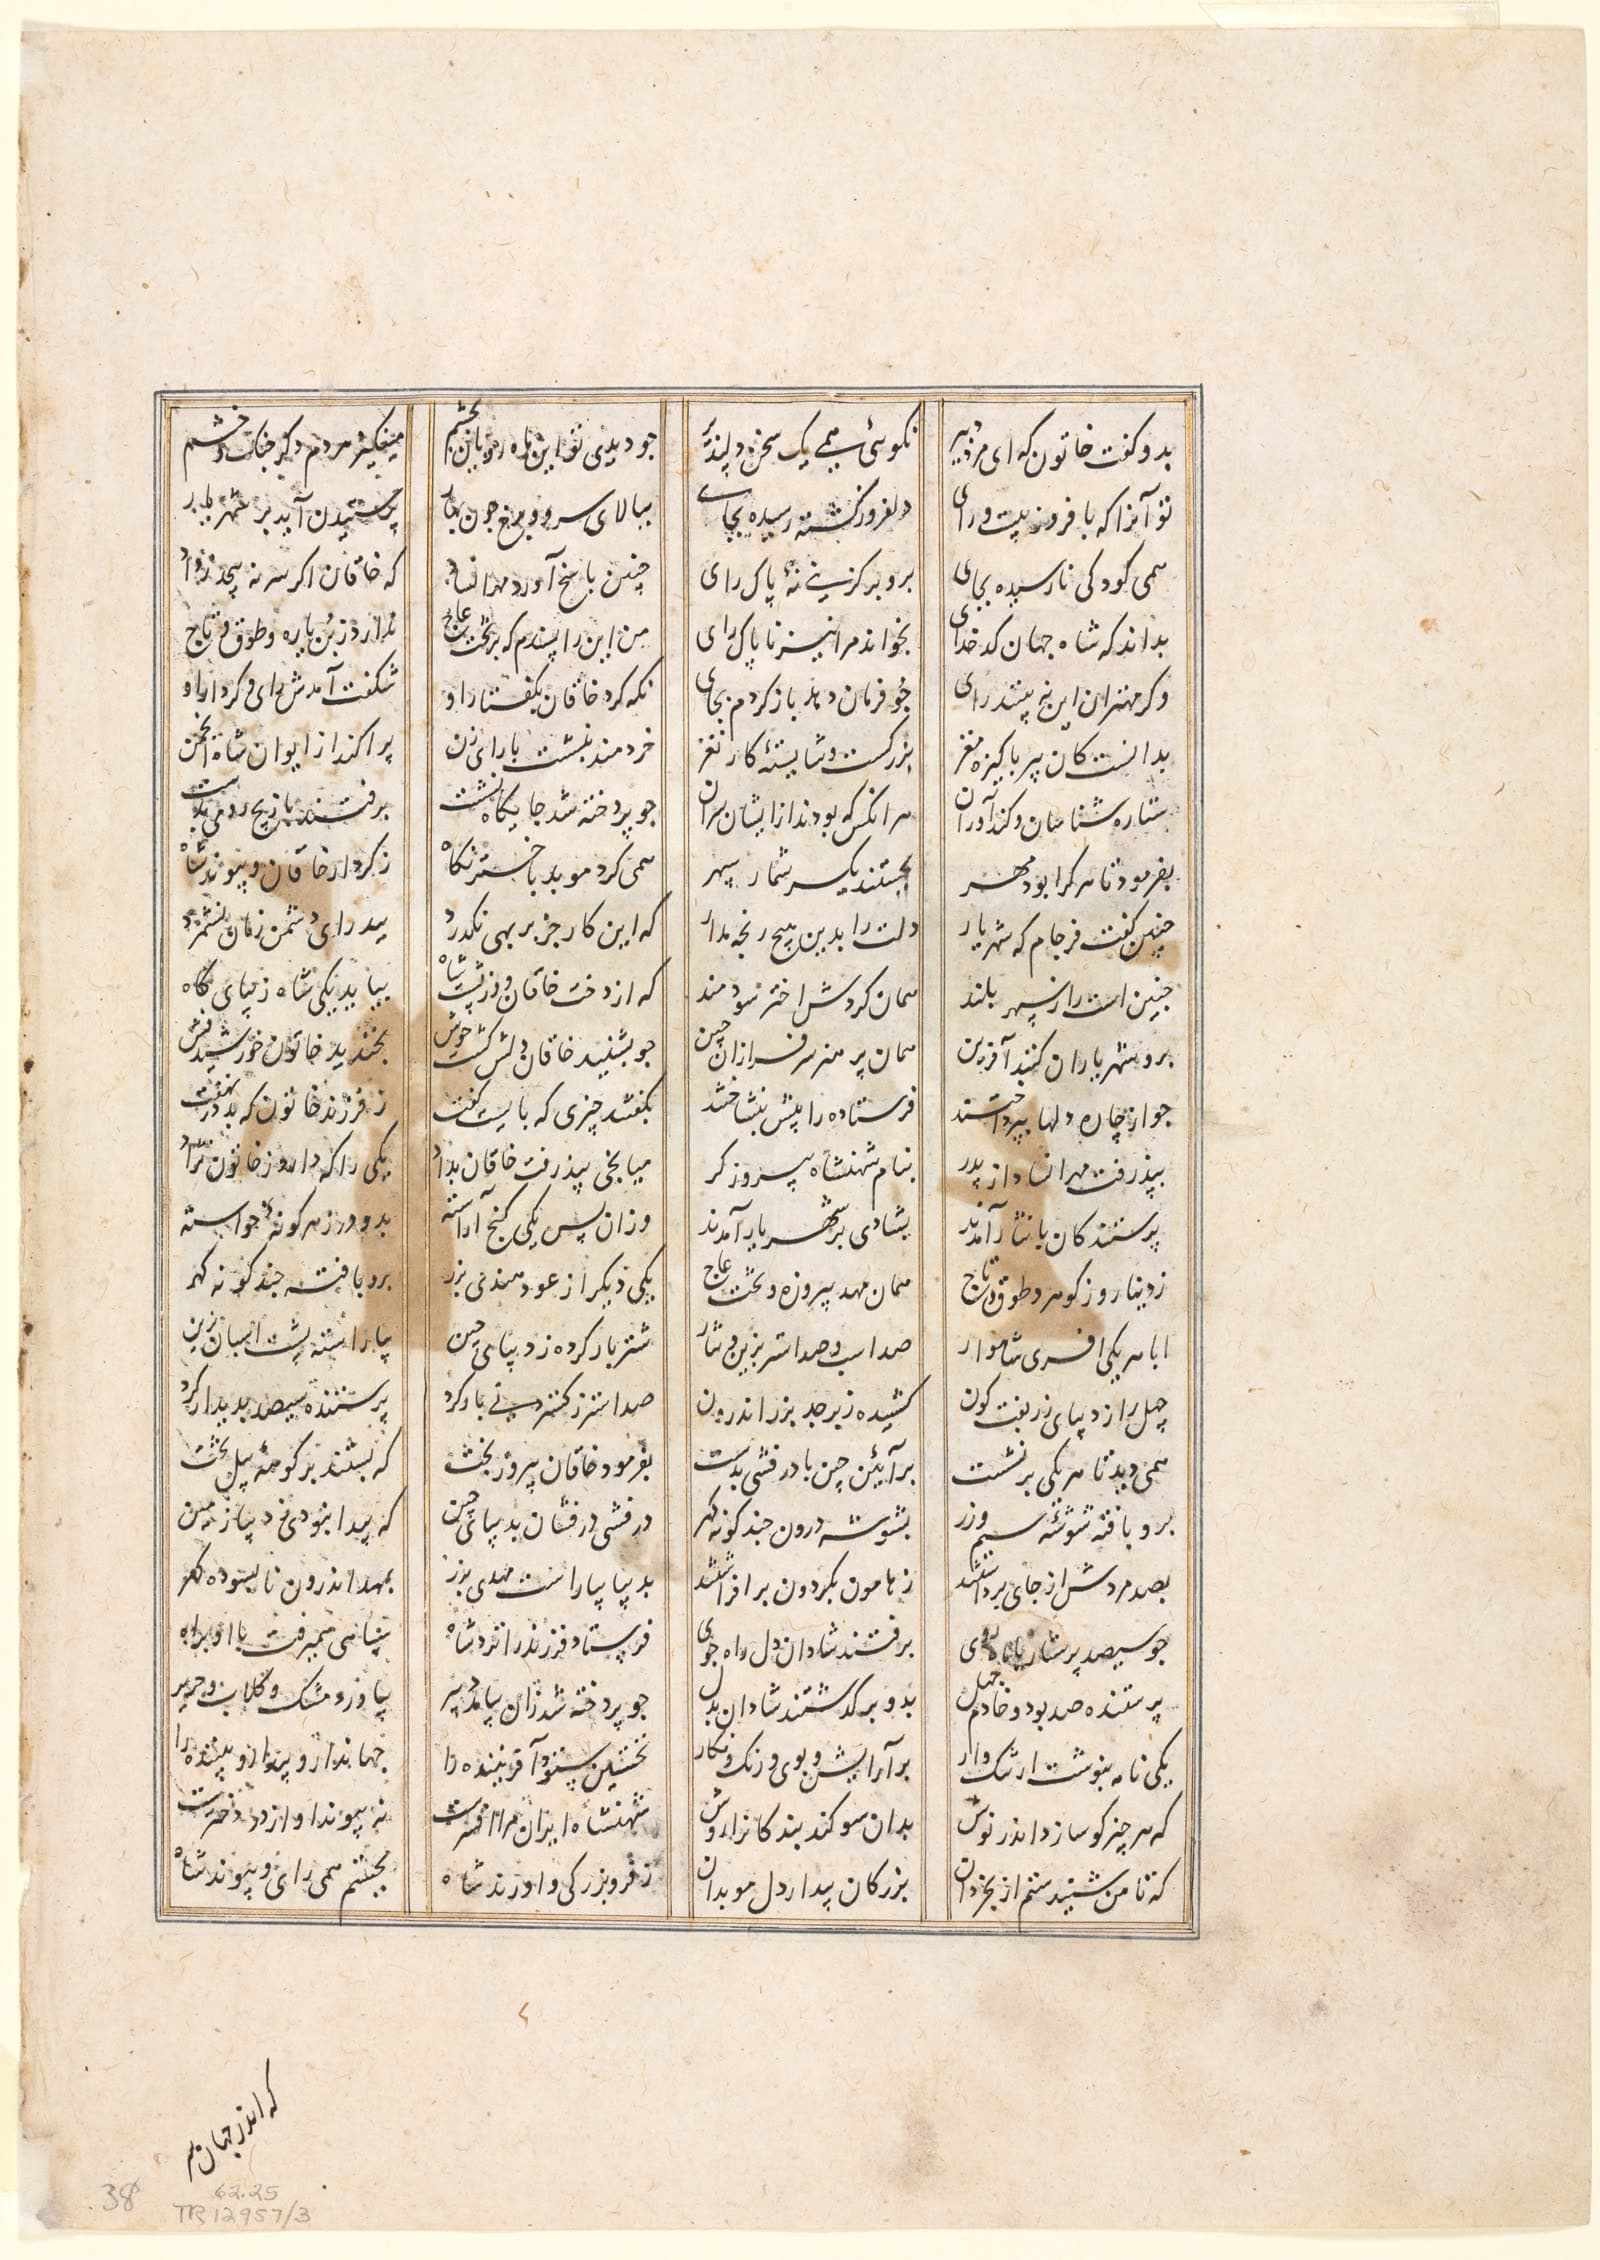 بدو گفت خاتون که ای مرد پیر نگوئی همی یک سخن دلپذیر چو دیدی تو این ماه رو باین بخشم
تو آنرا که با فر و زیبست و رای دلفروز گشته رسیده بجای ببالای سرو و برخ چون بهار پرستیدن آید بر شهریار
همی کودکی نارسیده بجای برو بر گزینی نهٔ پاک رای چنین پاسخ آورد مهرانستاد که خاقان اگر سر نه پیچد ز داد
بداند که شاه جهان کدخدای بخواند مرا نیز ناپاک رای من این را پسندم که بر تخت عاج ندارد زبن یاره و طوق و تاج
وگر مهتران این نه بینند رای چو فرمان دهد باز گردم بجای نگه کرد خاقان بگفتار او شگفت آمدش رای و کردار او
بدانست کان پیر پاکیزه مغز بزرگست و شایستهٔ کار نغز خردمند بنشست با رای زن پراکند از ایوان شاه انجمن
ستاره شناسان و کندآوران هر انکس که بودند از ایشان سران چو پردخته شد جایگاه نشست برفتند با زیج رومی بدست
بفرمود تا هر کرا بود مهر بجستند یکسر شمار سپهر همی کرد موبد باختر نگاه ز کردار خاقان و پیوند شاه
چنین گفت فرجام که شهریار دلت را بدین هیچ رنجه مدار که این کار جز بر بهی نگذرد ببد رای دشمن زمان نشمرد
چنین است راز سپهر بلند همان گردش اختر سودمند که از دخت خاقان وز پشت شاه بیاید یکی شاه زیبای گاه
برو شهریاران کنند آفرین همان پر هنر سرفرازان چین چو بشنید خاقان دلش گشت خوش بخندید خاتون خورشید فش
چو از چاره دلها بپرداختند فرستاده را پیش بنشاختند بگفتند چیزی که بایست گفت ز فرزند خاتون که بد در نهفت
بپذرفت مهرانستاد از پدر بنام شهنشاه پیروزگر میانجی بپذرفت خاقان بداد یکی را که دارد ز خاتون نژاد
پرستندگان با نثار آمدند بشادی بر شهریار آمدند وزان پس یکی گنج آراسته بدو در ز هر گونهٔ خواسته
ز دینار و ز گوهر و طوق و تاج همان مهد پیروزه و تخت عاج یکی دیگر از عود هندی بزر برو بافته چند گونه گهر
ابا هر یکی افسری شاهوار صد اسب و صد استر بزین و نثار شتر بار کرده ز دیبای چین بیاراسته پشت اسبان بزین
چهل را ز دیبای زربفت گون کشیده زبرجد بزر اندرون صد استر ز گستردنی بار کرد پرستنده سیصد پدیدار کرد
همی دید تا هر یکی بر نشست بر آئین چین با درفشی بدست بفرمود خاقان پیروز بخت که بستند بر کوههٔ پیل تخت
برو بافته شوشهٔ سیم و زر بشوشه درون چند گونه گهر درفشی درفشان بدیبای چین که پیدا نبودی ز دیبا زمین
بصد مردش از جای برداشتند ز هامون بگردون برافراشتند بدیبا بیاراست مهدی بزر بمهد اندرون نابسوده گهر
چو سیصد پرستار با ماه روی برفتند شادان دل راه جوی فرستاد فرزند را نزد شاه سپاهی همیرفت با او براه
پرستنده صد بود و خادم چهل بدو بر گذشتند شادان بدل چو پردخته شد زان بیامد دبیر بیاورد مشک و گلاب و حریر
یکی نامه بنوشت ارتنگ وار بر آرایش و بوی و رنگ و نگار نخستین ستود آفریننده را جهاندار و بیدار و بیننده را
که هر چیز کو سازد اندر نوش بدان سو کند بندگانرا روش شهنشاه ایران مرا افسرست نه پیوند او از در دخترست
که تا من شنیدستم از بخردان بزرگان بیدار دل موبدان ز فر و بزرگی و اورند شاه بجستم همی رای و پیوند شاه
که اندر جهان
38
62.25
TR 12957/3